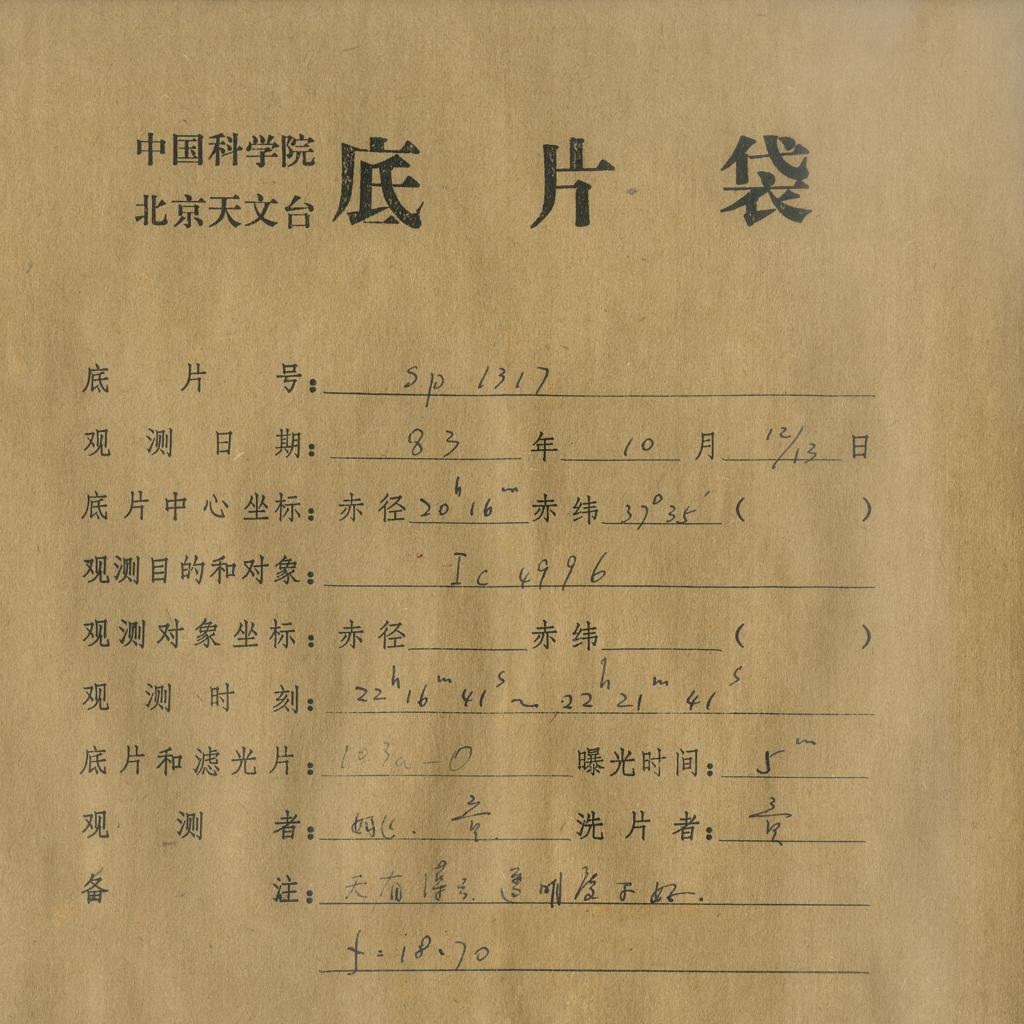 中国科学院
北京天文台 底片袋
底片号: Sp 1317
观测日期: 83 年 10 月 12/13 日
底片中心坐标: 赤径 20h 16m 赤纬 37°35′ ( )
观测目的和对象: Ic 4996
观测对象坐标: 赤径 赤纬 ( )
观测时刻: 22h 16m 41s ~ 22h 21m 41s
底片和滤光片: 103a-O 曝光时间: 5m
观测者: 姚.
洗片者:
备注: 天有薄云. 透明度不好.
f=18.70